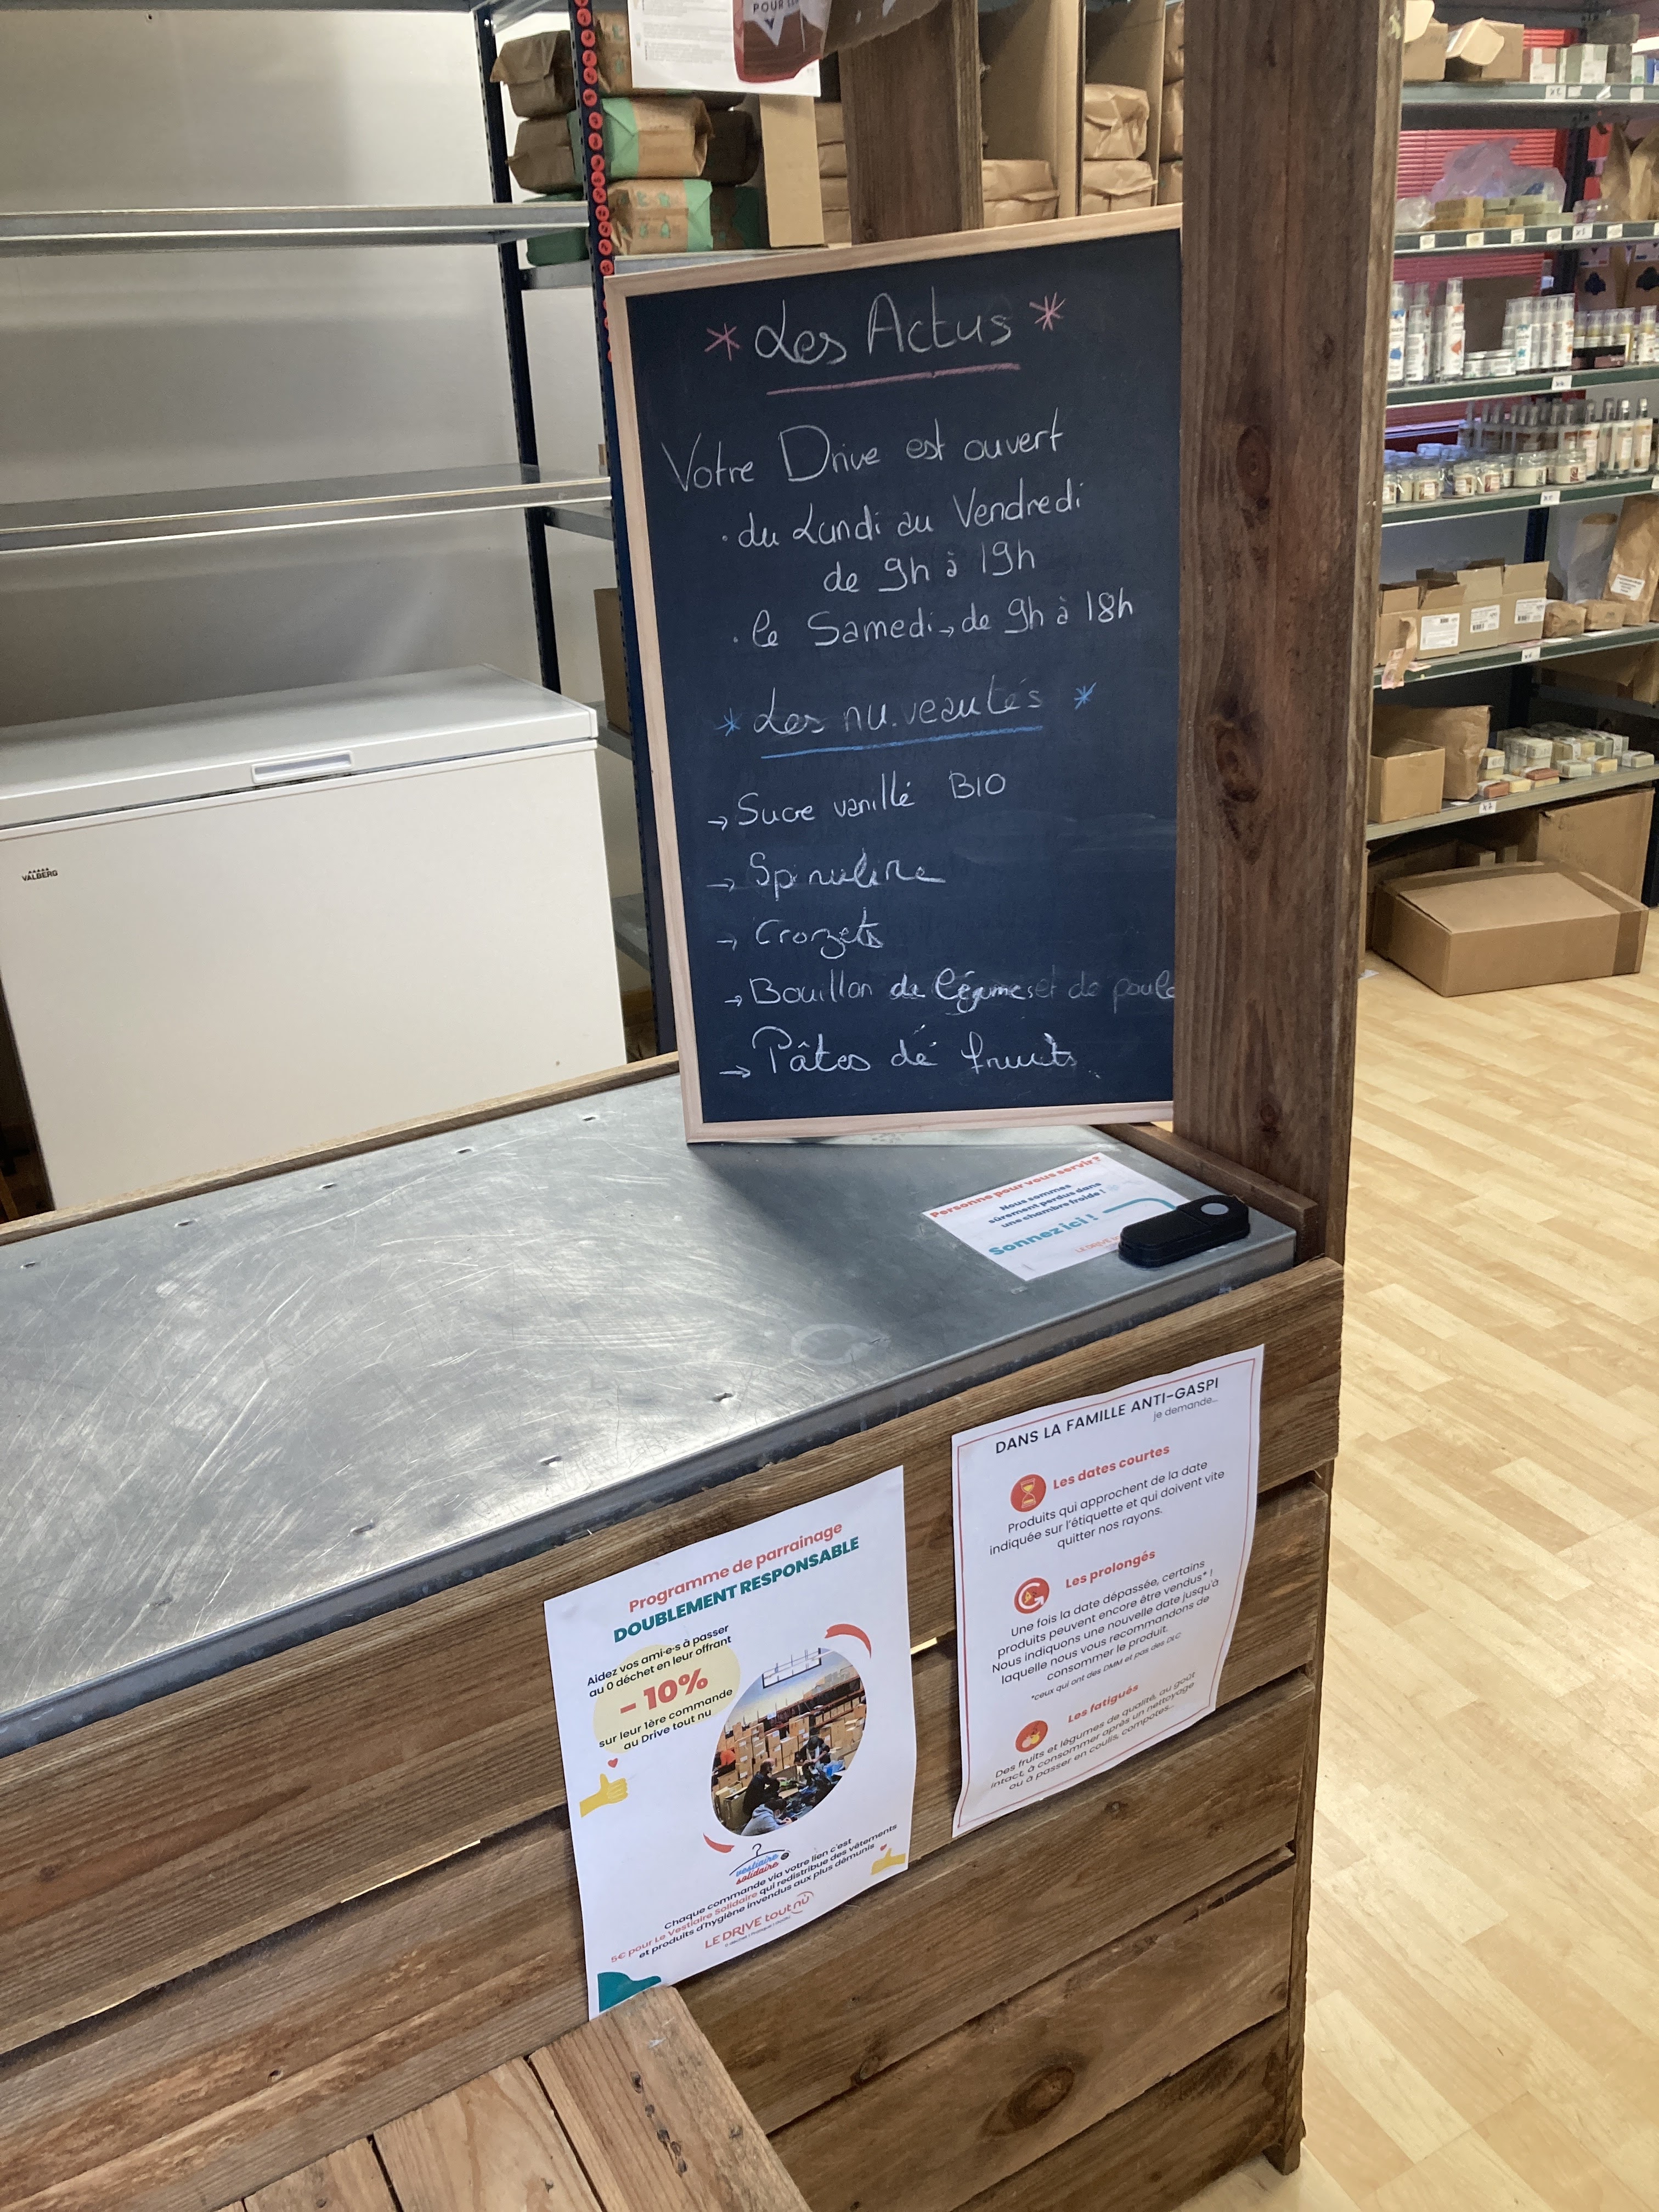 POUR LES
* Les Actus *
Votre Drive est ouvert
· du Lundi au Vendredi
de 9h à 19h
· le Samedi → de 9h à 18h
* Les nu.veautés *
→ Sucre vanillé BIO
→ Spiruline
→ Crozets
→ Bouillon de légumes et de poule
→ Pâtes de fruits
VALBERG
Personne pour vous servir ?
Nous sommes
sûrement perdus dans
une chambre froide !
Sonnez ici !
LE DRIVE
DANS LA FAMILLE ANTI-GASPI
je demande...
Les dates courtes
Produits qui approchent de la date
indiquée sur l'étiquette et qui doivent vite
quitter nos rayons.
Les prolongés
Une fois la date dépassée, certains
produits peuvent encore être vendus* !
Nous indiquons une nouvelle date jusqu'à
laquelle nous vous recommandons de
consommer le produit.
*ceux qui ont des DMM et pas des DLC
Les fatigués
Des fruits et légumes de qualité, au goût
intact, à consommer après un nettoyage
ou à passer en coulis, compotes...
Programme de parrainage
DOUBLEMENT RESPONSABLE
Aidez vos ami·e·s à passer
au 0 déchet en leur offrant
- 10%
sur leur 1ère commande
au Drive tout nu
vestiaire
solidaire
Chaque commande via votre lien c'est
5€ pour Le Vestiaire Solidaire qui redistribue des vêtements
et produits d'hygiène invendus aux plus démunis
LE DRIVE tout nu